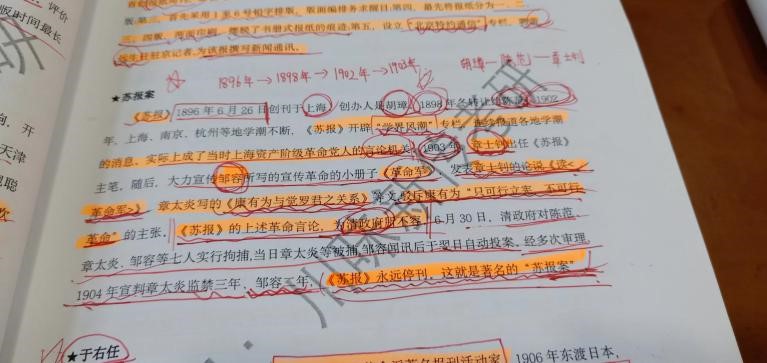 评价
版时间最长
版 第三，首先采用1至6号铅字排版，版面编排务求醒目；第四，最先将报纸分为一、二、
三、四版，两面印刷，摆脱了书册式报纸的痕迹；第五，设立“北京特约通信”专栏，聘
远生任驻京记者，为该报撰写新闻通讯。
1896年→1898年→1902年→1903年
胡璋—陈范—章士钊
★苏报案
《苏报》1896年6月26日创刊于上海，创办人是胡璋，1898年冬转让给陈范。1902
年，上海、南京、杭州等地学潮不断，《苏报》开辟“学界风潮”专栏，连续报道各地学潮
的消息，实际上成了当时上海资产阶级革命党人的言论机关。1903年，章士钊出任《苏报》
主笔，随后，大力宣传邹容所写的宣传革命的小册子《革命军》，发表章士钊的论说《读<
革命军>》，章太炎写的《康有为与觉罗君之关系》等文，驳斥康有为“只可行立宪，不可行
革命”的主张。《苏报》的上述革命言论，为清政府所不容，6月30日，清政府对陈范、
章太炎、邹容等七人实行拘捕，当日章太炎等被捕，邹容闻讯后于翌日自动投案。经多次审理，
1904年宣判章太炎监禁三年，邹容二年，《苏报》永远停刊，这就是著名的“苏报案”
★于右任
著名报刊活动家
1906年东渡日本，
开
天津